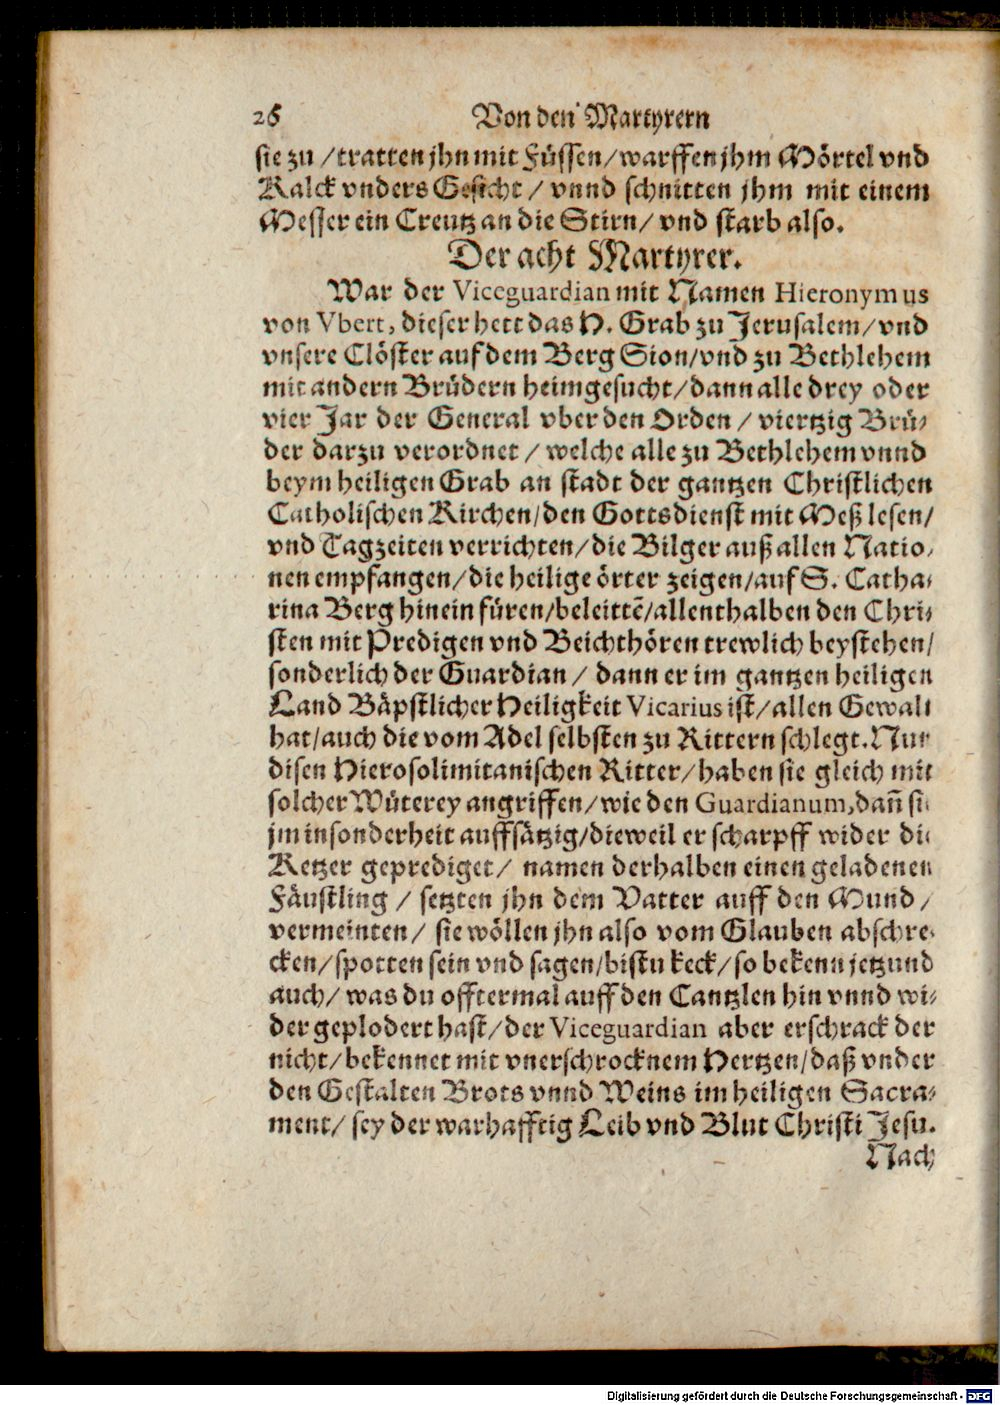 26 Von den Martyrern
sie zu / tratten jhn mit Füssen / warffen jhm Mörtel vnd
Kalck vnders Gesicht / vnnd schnitten jhm mit einem
Messer ein Creutz an die Stirn / vnd starb also.
Der acht Martyrer.
War der Viceguardian mit Namen Hieronymus
von Vbert, dieser hett das H. Grab zu Jerusalem / vnd
vnsere Clöster auf dem Berg Sion / vnd zu Bethlehem
mit andern Brüdern heimgesucht / dann alle drey oder
vier Jar der General vber den Orden / viertzig Brü-
der darzu verordnet / welche alle zu Bethlehem vnnd
beym heiligen Grab an stadt der gantzen Christlichen
Catholischen Kirchen / den Gottsdienst mit Meß lesen /
vnd Tagzeiten verrichten / die Bilger auß allen Natio-
nen empfangen / die heilige örter zeigen / auf S. Catha-
rina Berg hinein füren / beleittē / allenthalben den Chri-
sten mit Predigen vnd Beichthören trewlich beystehen /
sonderlich der Guardian / dann er im gantzen heiligen
Land Bäpstlicher Heiligkeit Vicarius ist / allen Gewalt
hat / auch die vom Adel selbsten zu Rittern schlegt. Nun
disen Hierosolimitanischen Ritter / haben sie gleich mit
solcher Wüterey angriffen / wie den Guardianum, dañ si
jm insonderheit auffsätzig / dieweil er scharpff wider di
Ketzer geprediget / namen derhalben einen geladenen
Fäustling / setzten jhn dem Vatter auff den Mund /
vermeinten / sie wöllen jhn also vom Glauben abschre-
cken / spotten sein vnd sagen / bistu keck / so bekenn jetzund
auch / was du offtermal auff den Cantzlen hin vnnd wi-
der geplodert hast / der Viceguardian aber erschrack der
nicht / bekennet mit vnerschrocknem Hertzen / daß vnder
den Gestalten Brots vnnd Weins im heiligen Sacra-
ment / sey der warhafftig Leib vnd Blut Christi Jesu.
Nach
Digitalisierung gefördert durch die Deutsche Forschungsgemeinschaft - DFG